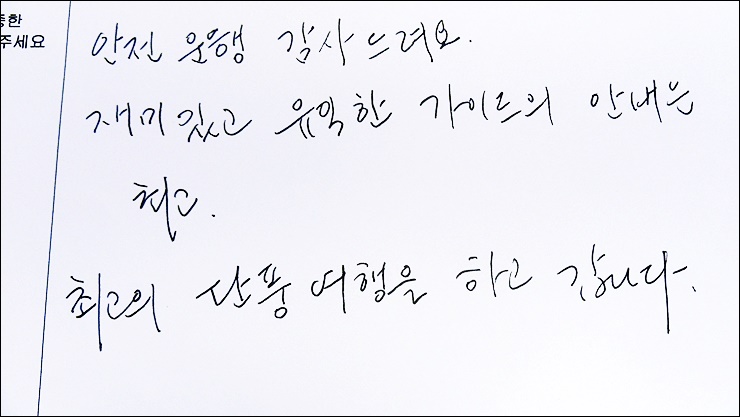 중한
주세요
안전 운행 감사드려요.
재미있고 유익한 가이드의 안내는
최고.
최고의 단풍여행을 하고 갑니다.